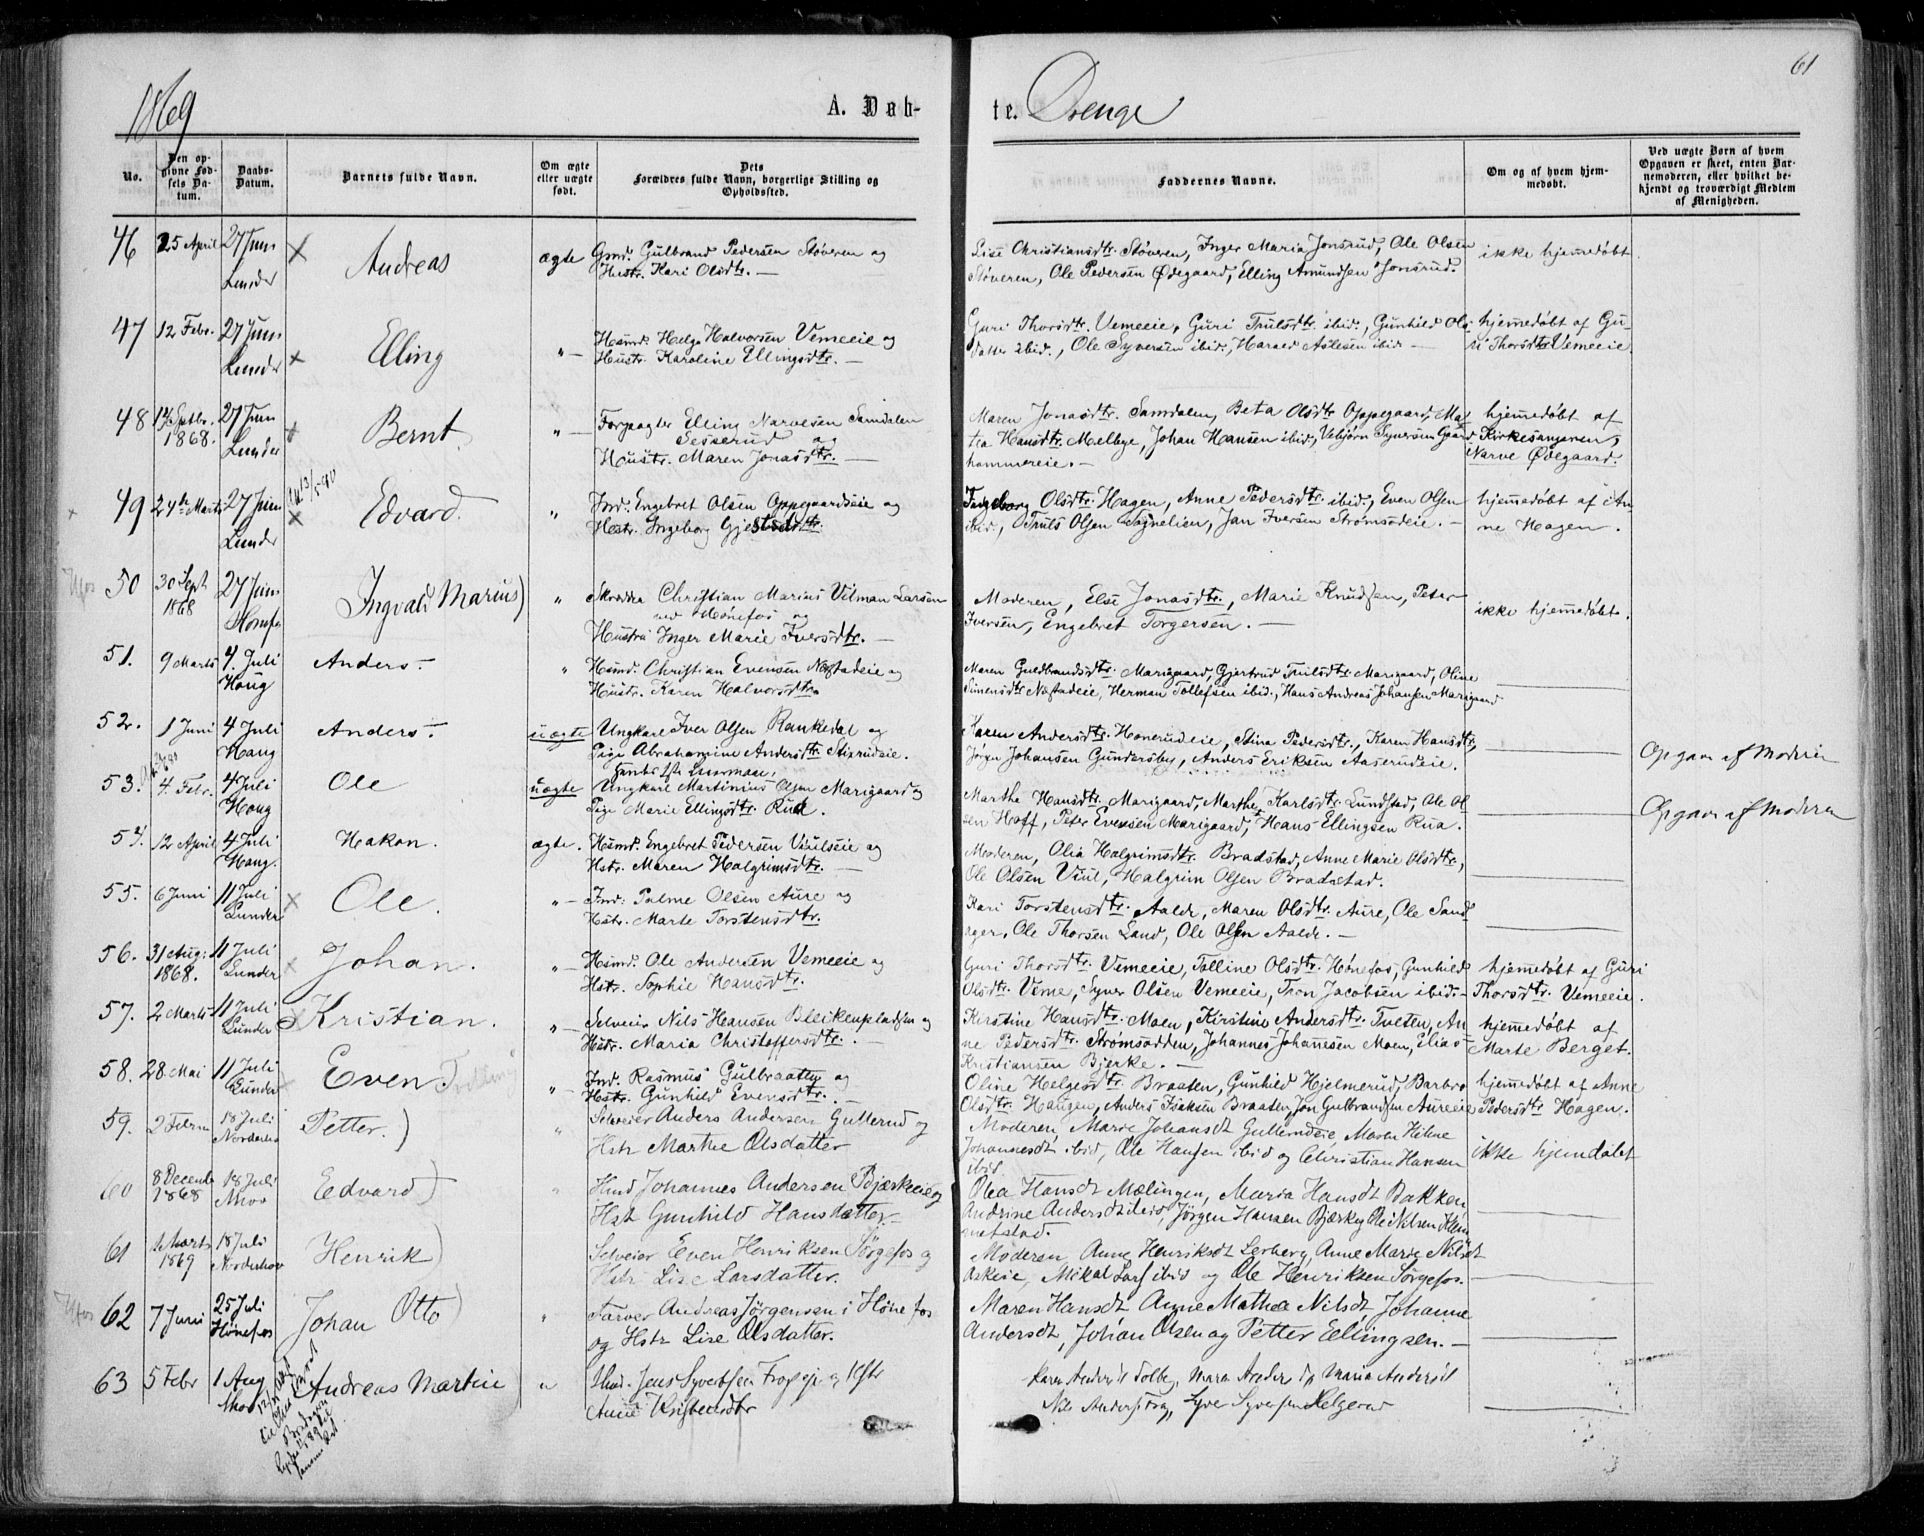 1869
A. Døb-
te. Drenge
61
No.
Den opgivne Fødsels Datum.
Daabs-Datum.
Barnets fulde Navn.
Om ægte eller uægte født.
Dets Forældres fulde Navn, borgerlige Stilling og Opholdssted.
Faddernes Navne.
Om og af hvem hjemmedøbt.
Ved uægte Børn af hvem Opgaven er skeet, enten Barnemoderen, eller hvilket bekjendt og troværdigt Medlem af Menigheden.
46 25 April 27 Juni Lunder Andreas ægte Gmd. Gulbrand Pedersen Støveren og
Hustr. Kari Olsdtr. —
Lise Christiansdtr. Støveren, Inger Maria Jonsrud, Ole Olsen
Støveren, Ole Pedersen Ødegaard, Elling Amundsen Jonsrud.
ikke hjemmedøbt.
47 12 Febr. 27 Juni Lunder Elling "— Husmd. Helge Halvorsen Vemeeie og
Hustr. Karoline Ellingsdtr. —
Guri Thorsdtr. Vemeeie, Guri Trulsdtr. ibid., Gunhild Ols-
datter ibid., Ole Syversen ibid., Harald Aslesen ibid —
hjemedøbt af Gu-
ri Thorsdtr Vemeeie.
48 14 Septbr. 1868. 27 Juni Lunder Bernt "— Forpagter Elling Narvesen Samdalen
Sesserud og
Hustr. Maren Jonasdtr. —
Maren Jonasdtr. Samdalen, Beta Olsdtr Oppegaard, Mat-
tea Hansdtr. Melbye, Johan Hansen ibid., Vebjørn Syversen Gaard-
hammereie. —
hjemedøbt af
Kirkesangeren,
Narve Ødegaard.
49 24de Marts 27 Juni Lunder Edvard. " Ind. Engebret Olsen Oppegaardseie og
Hstr. Ingeborg Gjestsdtr.
Ingeborg Olsdtr. Hagen, Anne Pedersdtr. ibid., Even Olsen
ibid., Truls Olsen Sognelien, Jan Iversen Strømsodeie. —
hjemedøbt af An-
ne Hagen.
50 30 Sept 1868 27 Juni Honefos Ingvald Marius) " Skrædder Christian Marius Vilman Larsen
ved Hønefos og
Hustru Inger Marie Iversdtr. —
Moderen, Else Jonasdtr., Marie Knudsen, Peter
Iversen, Engebret Torgersen. —
ikke hjemedøbt.
51. 9 Marts 4. Juli Houg Anders — " Husmd. Christian Evensen Næstadeie og
Hustr. Karen Halvorsdtr.
Maren Guldbrandsdtr. Marigaard, Gjertrud Trulsdtr. Marigaard, Oline
Simensdtr Næstadeie, Herman Tollefsen ibid., Hans Andreas Johansen Marigaard
52. 1 Juni 4 Juli Haug Anders — uægte Ungkarl Iver Olsen Rankedal og
Pige Abrahamine Andersdtr. Stixrudeie.
Karen Andersdtr. Honerudeie, Stina Pedersdtr., Karen Hansdtr,
Jørgen Johansen Gundersby, Anders Eriksen Aaserudeie.
Opgave af Moderen
53. 4. Febr. 4 Juli Haug Ole uægte Ungkarl Martinius Olsen Marigaard og
Pige Marie Ellingsdtr. Rua.
Marthe Hansdtr. Marigaard, Marthe Karlsdtr. Lundstad, Ole Ol-
sen Hoff, Peter Evensen Marigaard, Hans Ellingsen Rua.
Opgave af Moderen
54. 12 April 4 Juli Haug. Hakon. ægte. Husmd. Engebret Pedersen Viulseie og
Hstr. Maren Halgrimsdtr. —
Moderen, Olia Halgrimsdtr. Bradstad, Anne Marie Olsdtr,
Ole Olsen Viul, Halgrim Olsen Bradstad.
55. 6 Juni 11 Juli Lunder Ole. "— Ind: Palme Olsen Aure og
Hstr. Marte Torstensdtr.
Kari Torstensdtr. Aalde, Maren Olsdtr. Aure, Ole Sand-
ager, Ole Thorsen Land, Ole Olsen Aalde. —
56. 31 Aug: 1868. 11 Juli Lunder Johan. "— Husmd. Ole Andersen Vemeeie og
Hstr. Sophie Hansdtr.
Guri Thorsdtr. Vemeeie, Talline Olsdtr. Hønefos, Gunhild
Olsdtr. Veme, Syver Olsen Vemeeie, Thon Jacobsen ibid. —
hjemedøbt af Guri
Thorsdtr. Vemeeie.
57. 2 Marts 11 Juli Lunder Kristian. "— Selveier Nils Hansen Bleikenpladsen og
Hstr. Maria Christoffersdtr. —
Kirstine Hansdtr. Moen, Kirstine Andersdtr. Tveten, An-
ne Pedersdtr. Strømsodden, Johannes Johannesen Moen, Elias
Kristiansen Bjerke. —
hjemedøbt af
Marte Berget.
58. 28. Mai 11 Juli Lunder Even. Tvilling "— Ind. Rasmus Gulbraaten og
Hstr. Gunhild Evensdtr. —
Oline Helgesdtr. Braaten, Gunhild Hjelmerud, Barbro
Olsdtr. Haugen, Anders Isaksen Braaten, Jon Gulbrandsen Aureeie
hjemedøbt af Anne
Pedersdtr Hagen.
59. 2 Februar 18 Juli Norderhov Petter.) " Selveier Anders Andersen Gullerud og
Hstr Marthe Olsdatter
Moderen, Marie Johansdt Gullerudeie, Maren Helene
Johannesdt ibid, Ole Hansen ibid og Christian Hansen
ibid.
ikke hjemdøbt
60 8 Decemb 1868 18 Juli Edvard) " Hmd Johannes Andersen Bjærkeeie og
Hst Gunhild Hansdatter —
Olea Hansdt Mælingen, Maria Hansdt Bakken
Andrine Andersdt ibid, Jørgen Hansen Bjærke, Ole Nilsen
61 Marts 1869 18 Juli Norderhov Henrik) Selveier Even Henriksen Sørgefos og
Hst Lise Larsdatter.
Moderen, Anne Henriksdt Lerberg Anne Marie Nilsdt
Askeie, Mikal Lars ibid og Ole Henriksen Sørgefos.
62 7 Juni 25 Juli Hønefos Johan Otto) " Farver Andreas Jørgensen i Hønefos
og Hstr Lise Olsdatter.
Maren Hansdt Anne Mathea Nilsdt Johanne
Andersdt, Johan Olsen og Petter Ellingsen. —
63 5 Febr 1 Aug Andreas Martin " Hmd. Jens Syvertsen og Hstr
Anne Kristensdtr
Karen Andersdt Tolby, Maren Andersdt Maria Andersdt
Nils Anders, Syver Syversen Selgerud